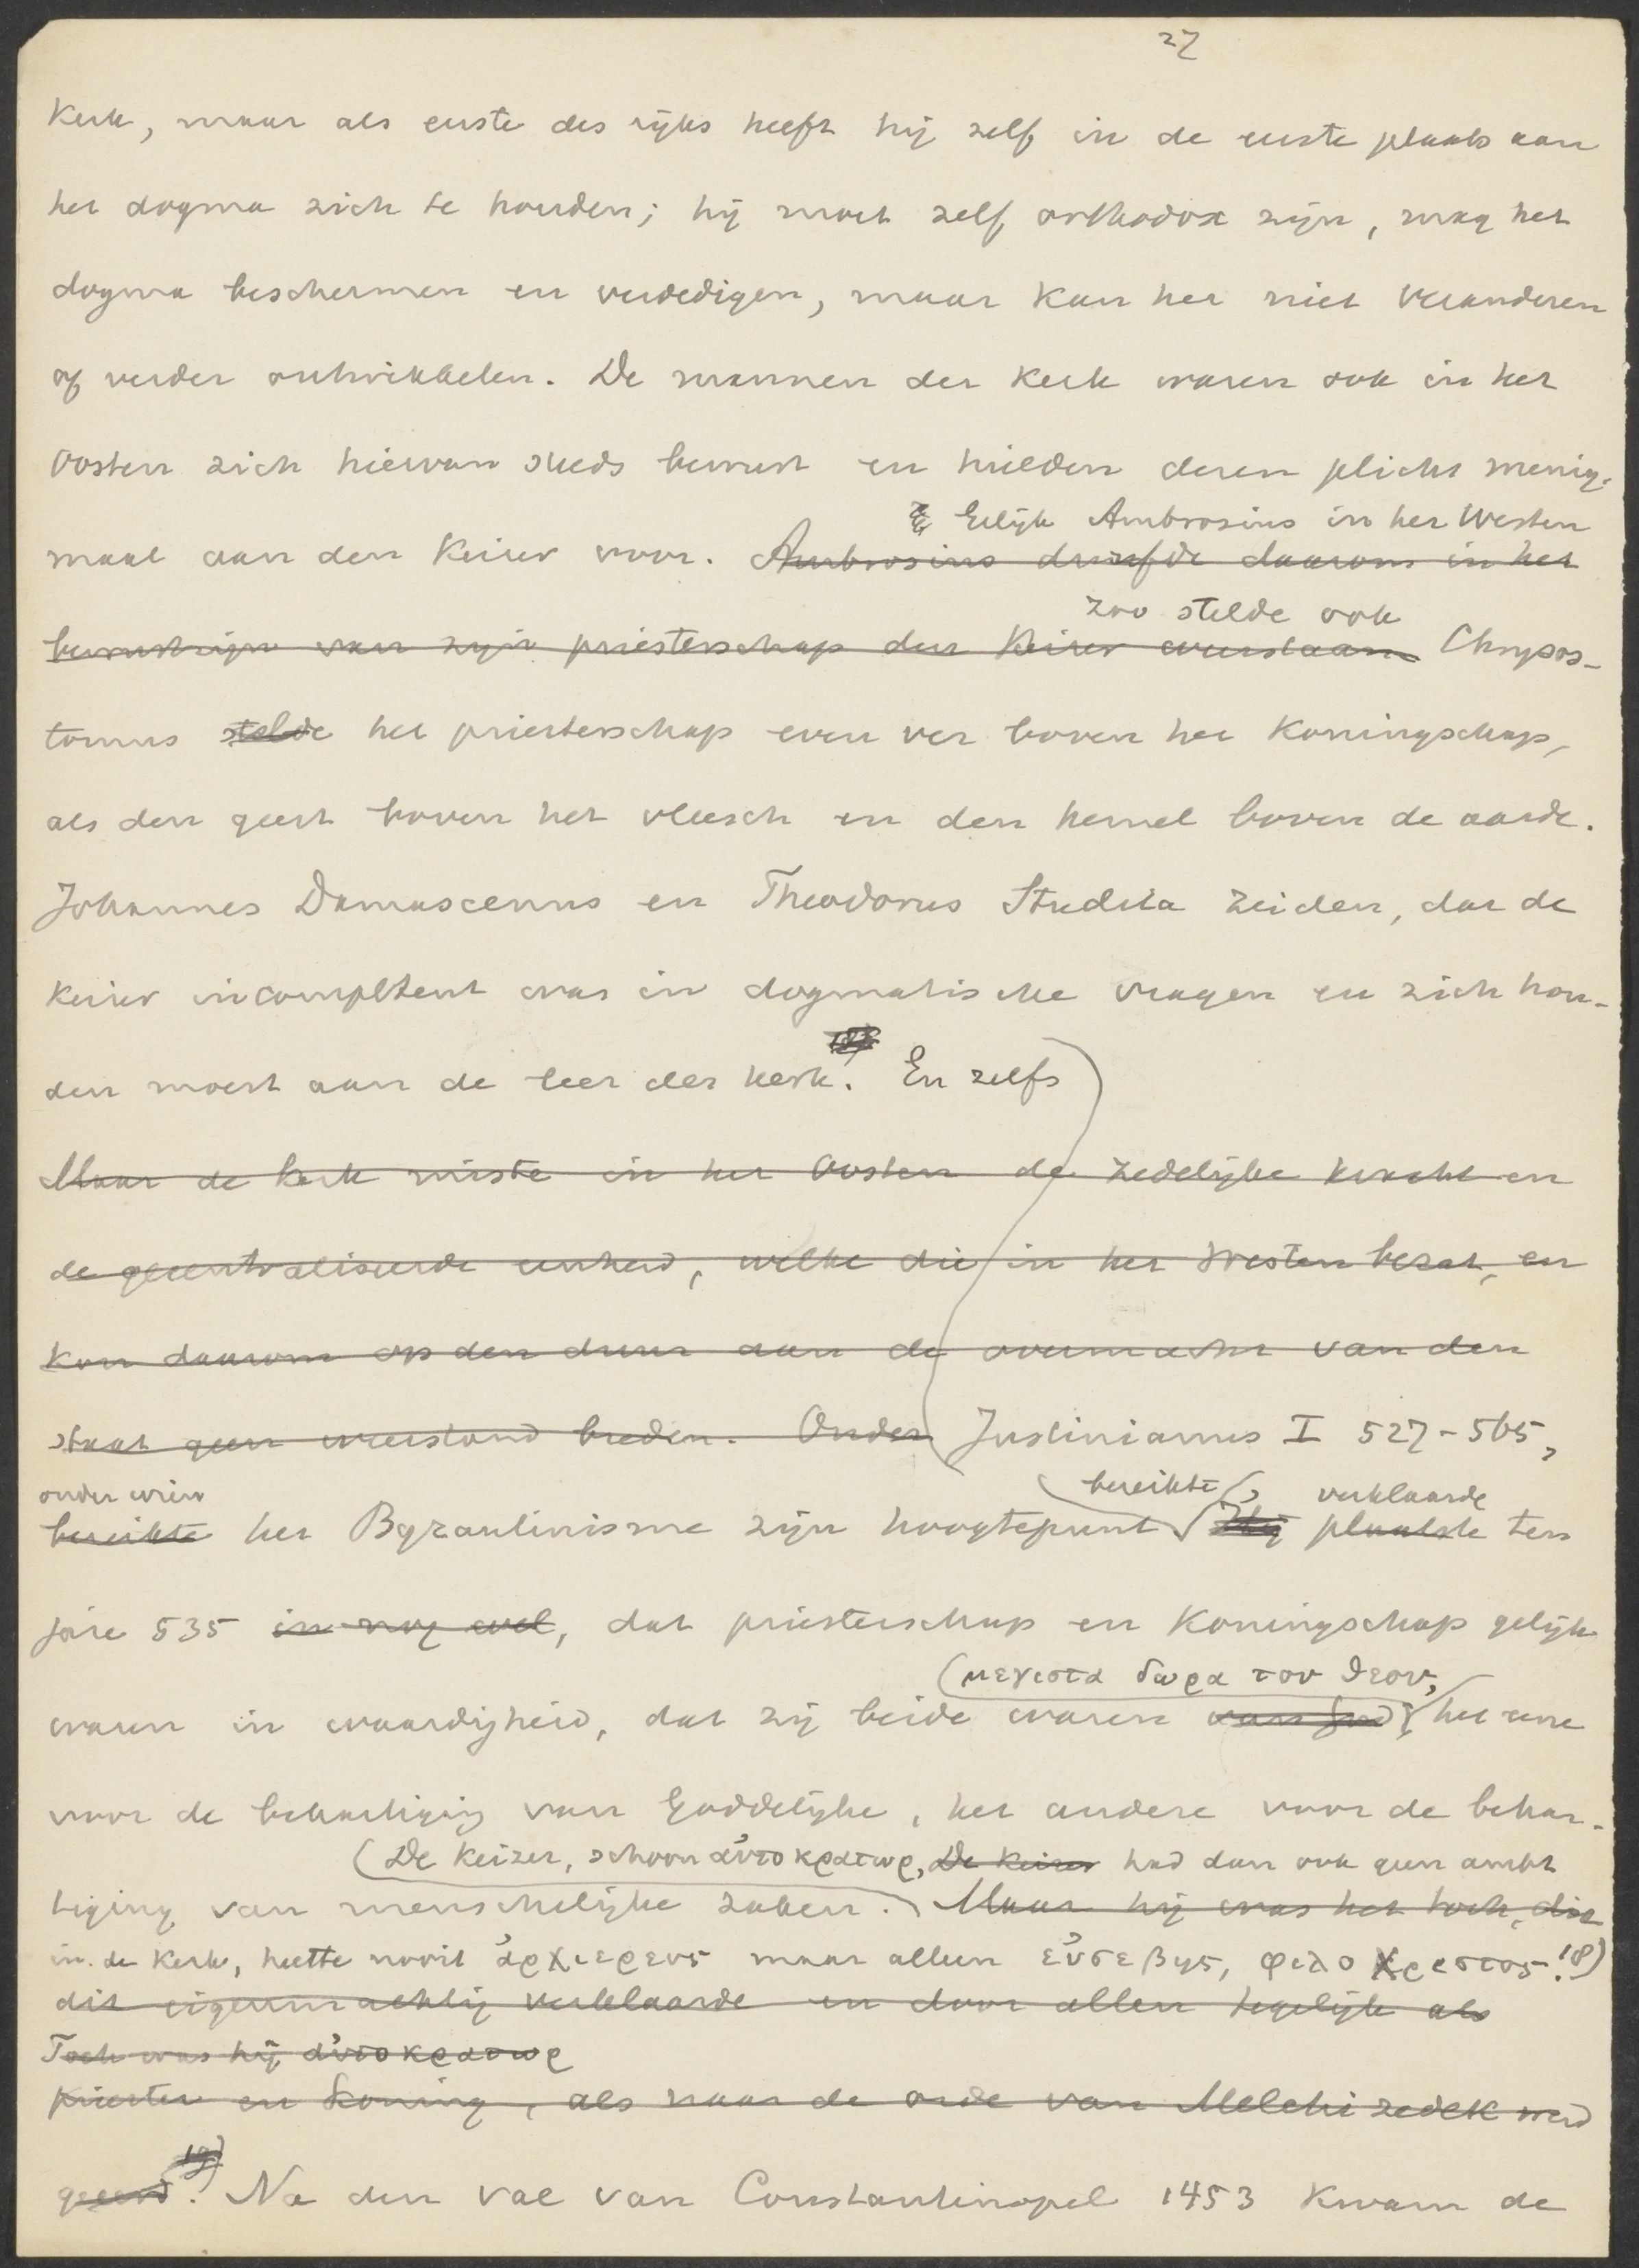 27
Kerk, maar als eerste des rijks heeft hij zelf in de eerste plaats aan
het dogma zich te houden; hij moet zelf orthodox zijn, mag het
dogma beschermen en verdedigen, maar kan het niet veranderen
of verder ontwikkelen. De mannen der Kerk waren ook in het
Oosten zich hiervan steeds bewust en hielden dezen plicht menig-
Gelijk Ambrosius in het Westen
maal aan den Keizer voor. Ambrosius durfde daarom in het
zoo stelde ook
bewustzijn van zijn priesterschap den Keizer weerstaan Chrysos-
tomus stelde het priesterschap even ver boven het Koningschap,
als den geest boven het vleesch en den hemel boven de aarde.
Johannes Damascenus en Theodorus Studita zeiden, dat de
Keizer incompetent was in dogmatische vragen en zich hou-
den moest aan de leer der kerk. En zelfs
Maar de Kerk miste in het Oosten de zedelijke kracht en
de gecentraliseerde eenheid, welke die in het Westen bezat, en
kon daarom op den duur aan de overmacht van den
staat geen weerstand bieden. Onder Justinianus I 527-565,
onder wien bereikte, verklaarde
bereikte het Byzantinisme zijn hoogtepunt Hij plaatste ten
jare 535 in nog wel, dat priesterschap en Koningschap gelijk
(μεγιστα δωρα του θεου,
waren in waardigheid, dat zij beide waren van God, het eene
voor de behartiging van Goddelijke, het andere voor de behar-
(De Keizer, schoon ἀυτοκρατωρ, De Keizer had dan ook geen ambt
tiging van menschelijke zaken. Maar hij was het toch, die
in de Kerk, heette nooit ἀρχιερευς maar alleen εὐσεβης, φιλοχριστος. 18)
dit eigenmachtig verklaarde en door allen tegelijk als
Toch was hij ἀυτοκρατωρ
priester en Koning, als naar de orde van Melchizedek werd
geeerd. 19) Na den val van Constantinopel 1453 kwam de